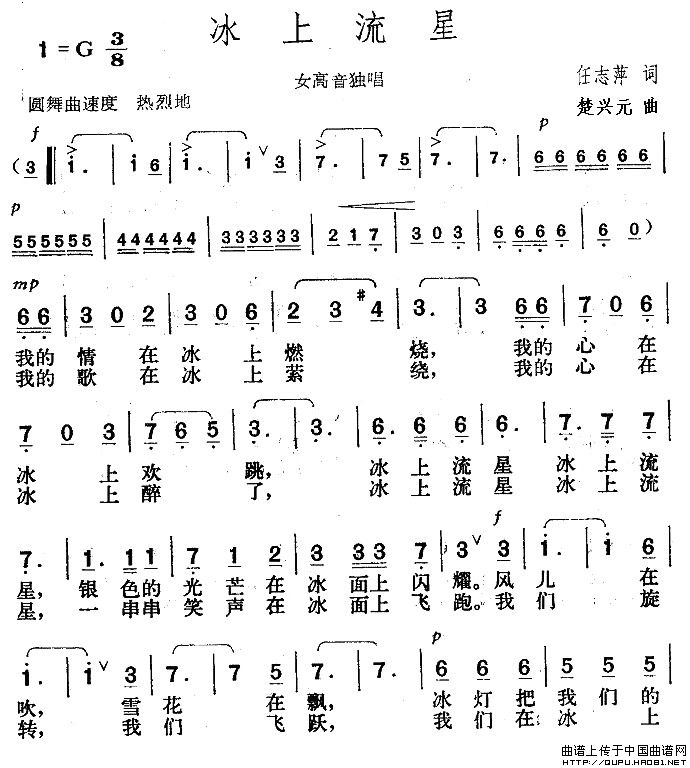 冰上流星
1=G 3/8
女高音独唱
任志萍 词
圆舞曲速度 热烈地
楚兴元 曲
f p
(3 ‖ i. | i 6 | i. | i ∨ 3 | 7. | 7 5 | 7. | 7. | 6 6 6 6 6 6 |
p
555555 | 444444 | 333333 | 2 1 7 | 3 0 3 | 6 6 6 6 | 6 0 )
mp
6 6 | 3 0 2 | 3 0 6 | 2 3 #4 | 3. | 3 6 6 | 7 0 6 |
我的 情 在 冰 上 燃 烧, 我的 心 在
我的 歌 在 冰 上 萦 绕, 我的 心 在
7 0 3 | 7 6 5 | 3. | 3. | 6. 6 6 | 6. | 7. 7 7 |
冰 上 欢 跳, 冰 上 流 星 冰 上 流
冰 上 醉 了, 冰 上 流 星 冰 上 流
f
7. | 1. 1 1 | 7 1 2 | 3 3 3 | 7 | 3 ∨ 3 | i. | i 6 |
星, 银 色的 光 芒 在 冰 面上 闪 耀。风 儿 在
星, 一 串串 笑 声 在 冰 面上 飞 跑。我 们 旋
p
i. | i ∨ 3 | 7. | 7 5 | 7. | 7. | 6 6 6 | 5 5 5 |
吹, 雪 花 在 飘, 冰 灯 把 我 们 的
转, 我 们 飞 跃, 我 们 在 冰 上
曲谱上传于中国曲谱网
HTTP://QUPU.HAO81.NET